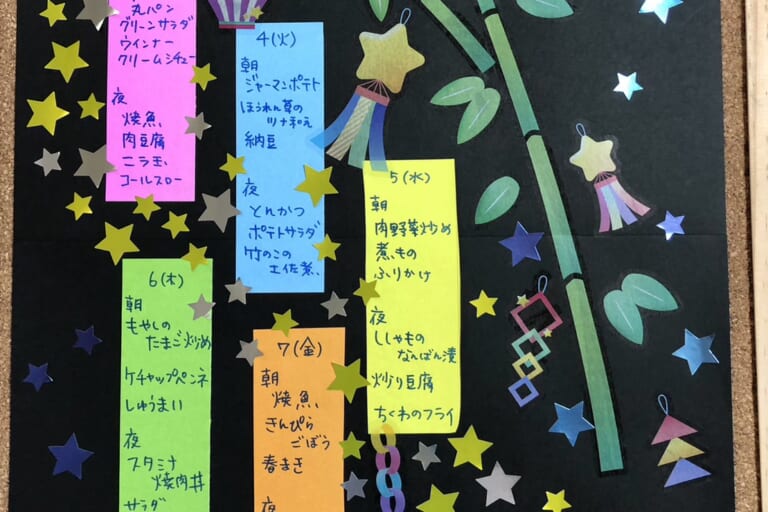 丸パン
グリーンサラダ
ウインナー
クリームシチュー
夜
焼魚
肉豆腐
ニラ玉
コールスロー
4(火)
朝
ジャーマンポテト
ほうれん草の
ツナ和え
納豆
夜
とんかつ
ポテトサラダ
竹のこの
土佐煮
5(水)
朝
肉野菜炒め
煮もの
ふりかけ
夜
ししゃもの
なんばん漬
炒り豆腐
ちくわのフライ
6(木)
朝
もやしの
たまご炒め
ケチャップペンネ
しゅうまい
夜
スタミナ
焼肉丼
サラダ
7(金)
朝
焼魚
きんぴら
ごぼう
春まき
夜